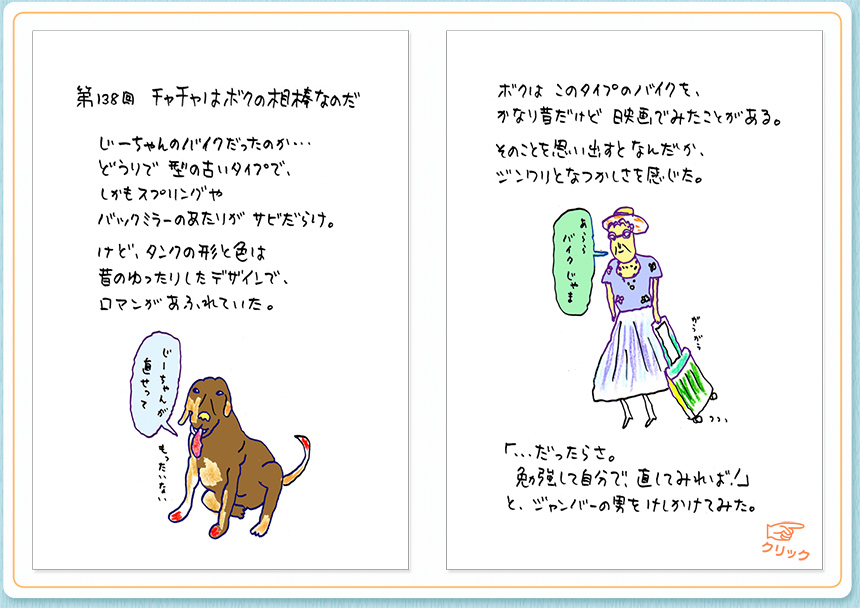 第138回 チャチャはボクの相棒なのだ
じーちゃんのバイクだったのか…
どうりで 型の古いタイプで、
しかもスプリングや
バックミラーのあたりが サビだらけ。
けど、タンクの形と色は
昔のゆったりしたデザインで、
ロマンがあふれていた。
じーちゃんが
直せって
もったいない
ボクは このタイプのバイクを、
かなり昔だけど 映画でみたことがある。
そのことを思い出すとなんだか、
ジンワリとなつかしさを感じた。
あ、らら
バイクじゃま
がらがら
「…だったらさ。
勉強して自分で、直してみれば!」
と、ジャンパーの男をけしかけてみた。
クリック